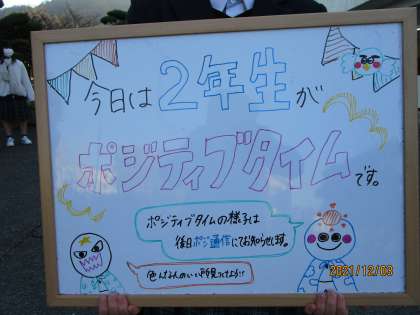 今日は2年生が
ポジティブタイムです。
ポジティブタイムの様子は
後日ポジ通信にてお知らせします。
色んな人のいい所見つけよう!!
2021/12/03